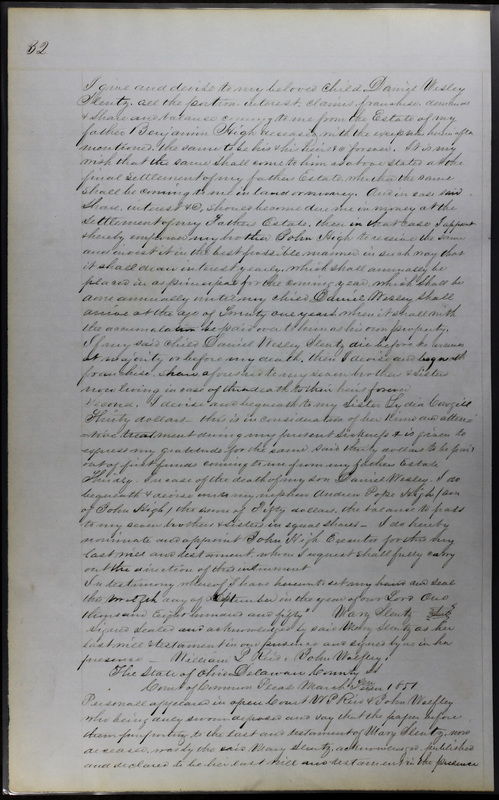 62
I give and devise to my beloved child Daniel Wesley
Slentz, all the portion interest, claims, franchise, demands
& share and because coming to me from the Estate of my
father Benjamin High deceased, with the exception herein after
mentioned the same to be his & his heirs forever. It is my
wish that the same shall come to him as above stated at the
final settlement of my father Estate, when that the same
shall be coming to me in land or money. And in case said
Share, interest &c, should become due me in money at the
settlement of my Fathers Estate, then in that case I appoint
& hereby empower my brother John High to receive the same
and invest it in the best possible manner in such way that
it shall draw interest yearly, which shall annually be
placed in as principal for the coming year, which shall be
done annually until my child Daniel Wesley shall
arrive at the age of Twenty one years when it shall with
the accumulation be paid over to him as his own property.
If my said child Daniel Wesley Slentz die before he comes
at majority or before my death, then I devise and bequeath
franchise share aforesaid to my seven brother & sisters
now living in case of their death to their heirs forever
Second. I devise and bequeath to my sister Lydia
Thirty dollars this is in consideration of her kind and attentive
treatment during my present sickness & is given to
express my gratitude for the same said thirty dollars to be paid
out of first funds coming to me from my father Estate
Thirdly. In case of the death of my son Daniel Wesley. I do
bequeath & devise unto my nephew Andrew Pope High (son
of John High) the sum of Fifty dollars, the balance to pass
to my seven brothers & sisters in equal shares – I do hereby
nominate and appoint John High Executor for this my
last will and testament whom I request shall fully carry
out the direction of this instrument
In testimony whereof I have hereunto set my hand and seal
this twelfth day of September in the year of our Lord One
thousand Eight hundred and fifty Mary Slentz
Signed Sealed and acknowledged by said Mary Slentz as her
last will & testament in our presence and signed by us in her
presence – William P. Reid, John Wolfley
The State of Ohio Delaware County
Court of Common Pleas March Term 1851
Personally appeared in open Court W P Reid & John Wolfley
who being duly sworn deposed and say that the paper before
them purporting to be the last and testament of Mary Slentz, now
deceased, was by the said Mary Slentz, acknowledged, published
and declared to be her last will and testament in the presence